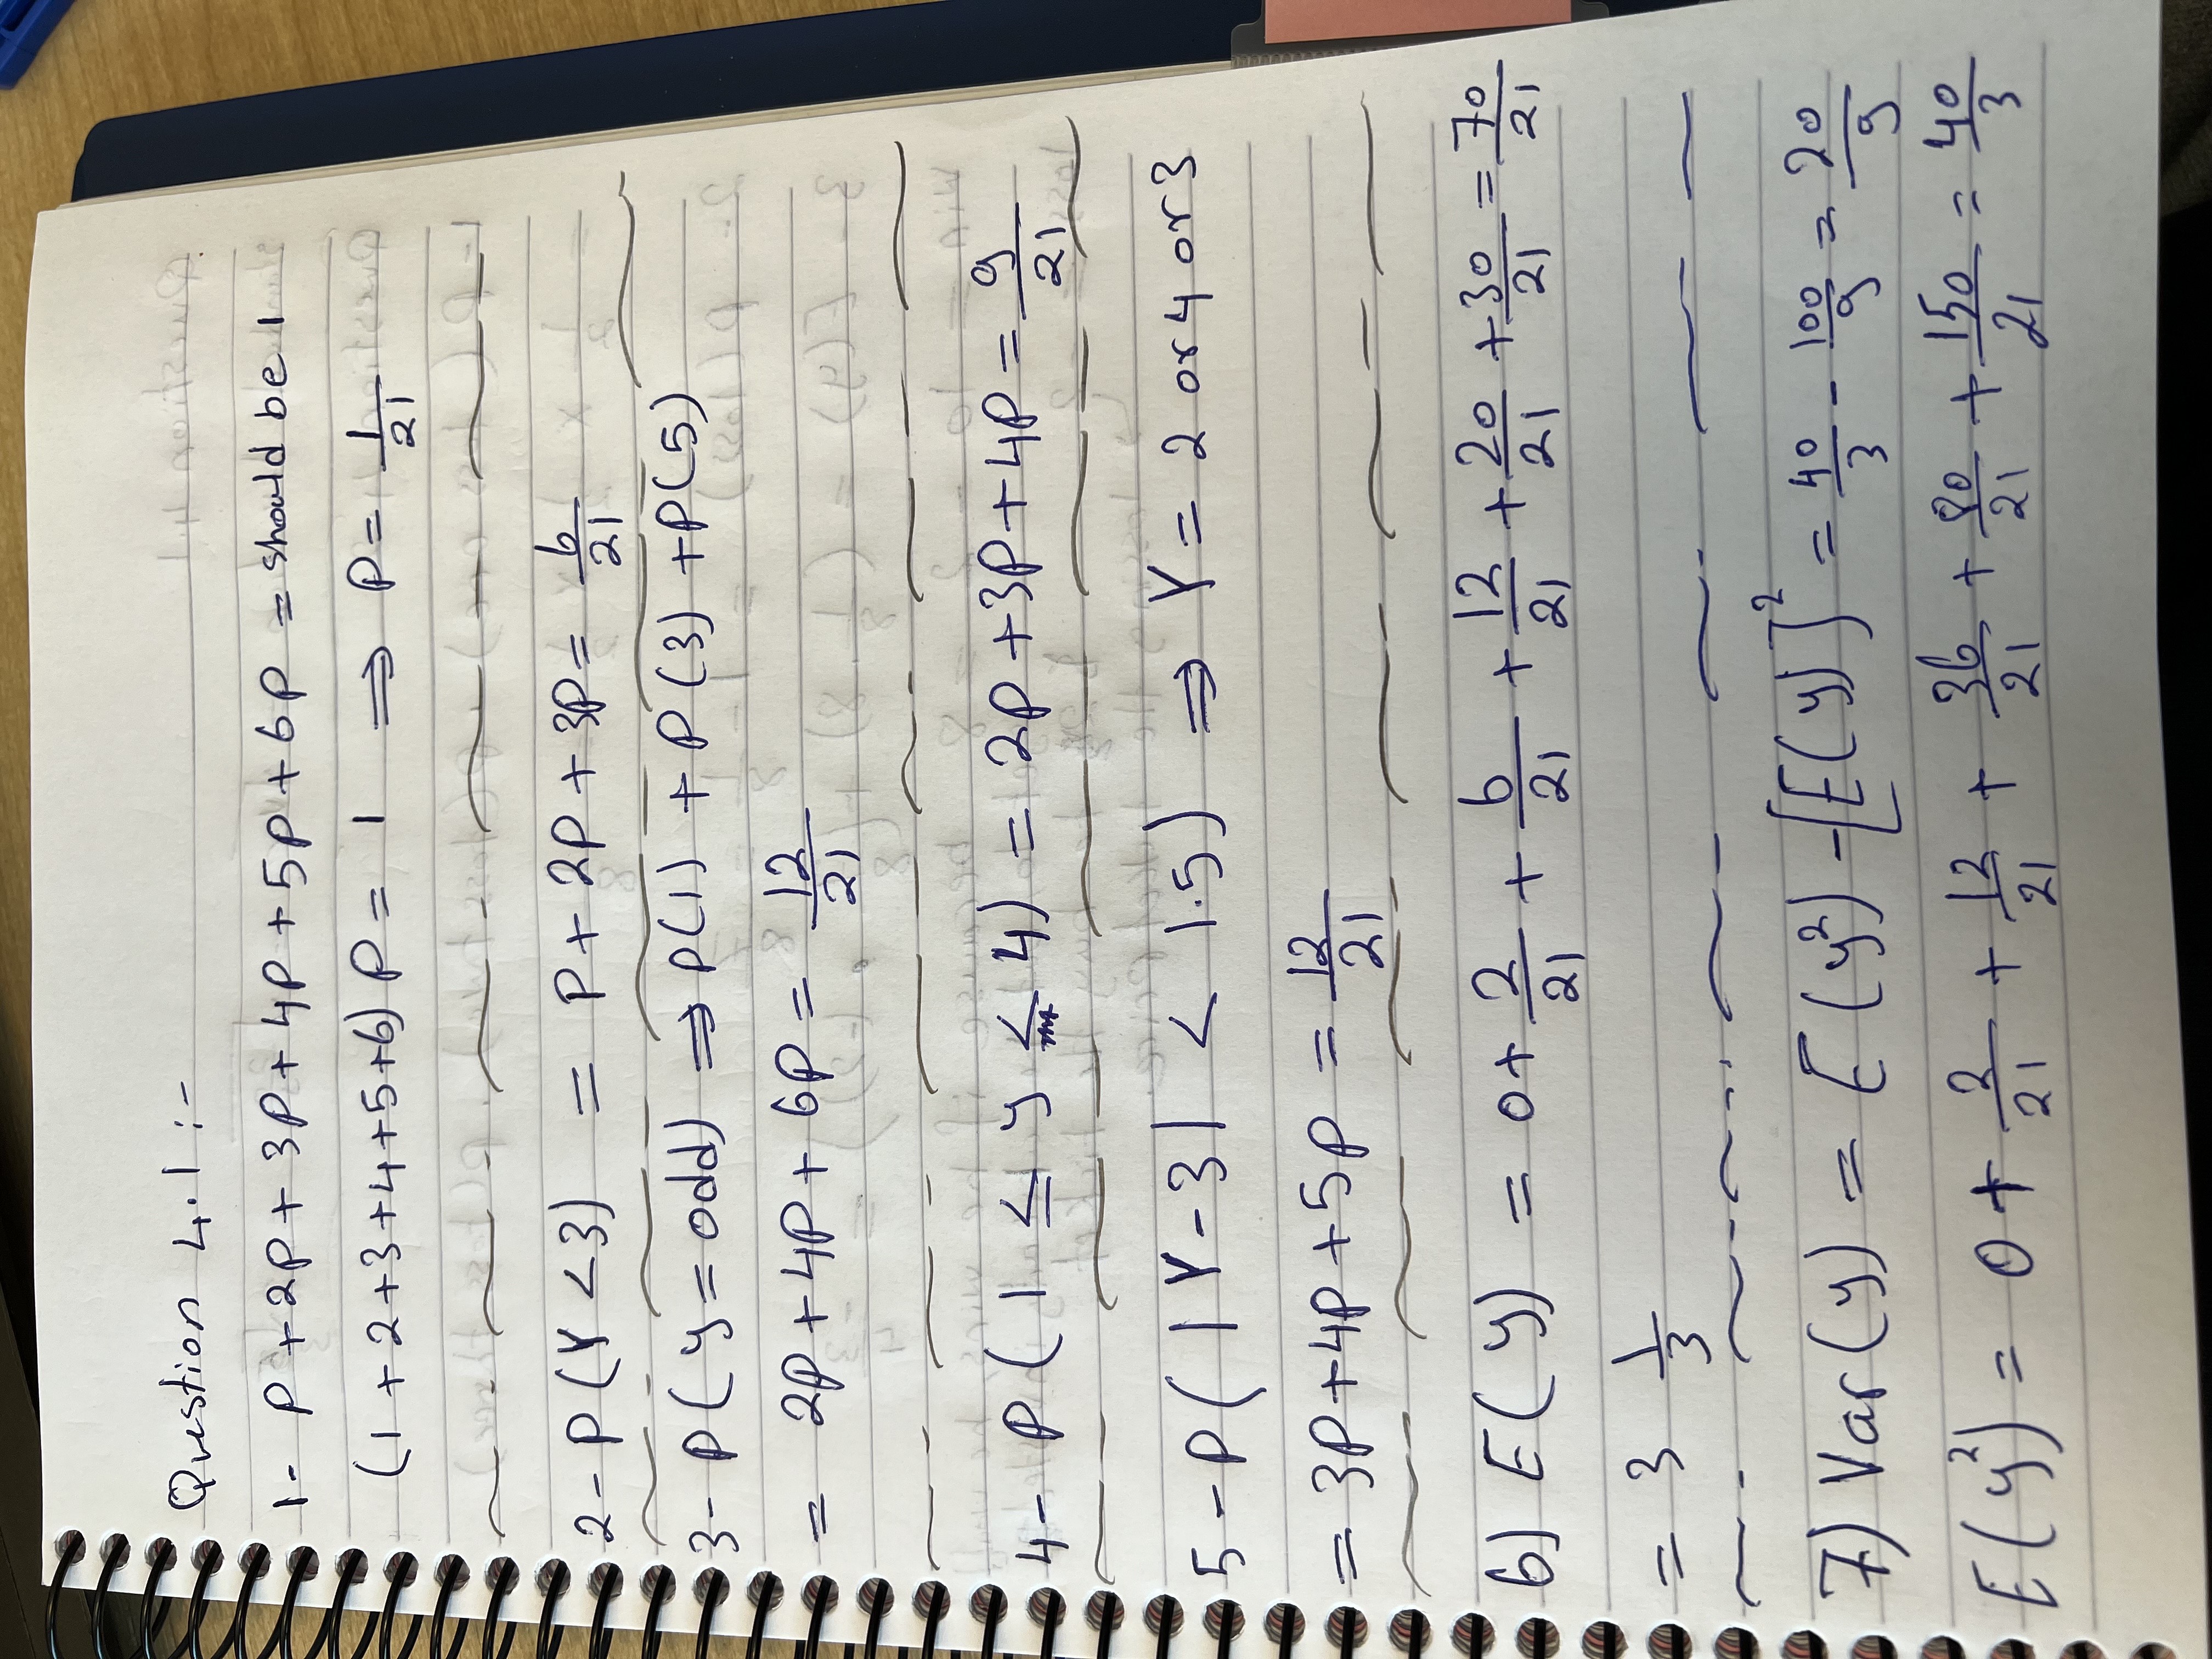 Question 4.1 :-
1- P + 2P + 3P + 4P + 5P + 6P = should be 1
(1 + 2 + 3 + 4 + 5 + 6) P = 1 ⇒ P = 1/21
2- P(Y < 3) = P + 2P + 3P = 6/21
3- P(y = odd) ⇒ P(1) + P(3) + P(5)
= 2P + 4P + 6P = 12/21
4- P(1 ≤ y < 4) = 2P + 3P + 4P = 9/21
5- P(|Y - 3| < 1.5) ⇒ Y = 2 or 4 or 3
= 3P + 4P + 5P = 12/21
6) E(y) = 0 + 2/21 + 6/21 + 12/21 + 20/21 + 30/21 = 70/21
= 3 1/3
7) Var(y) = E(y²) - [E(y)]² = 40/3 - 100/9 = 20/9
E(y²) = 0 + 2/21 + 12/21 + 36/21 + 80/21 + 150/21 = 40/3